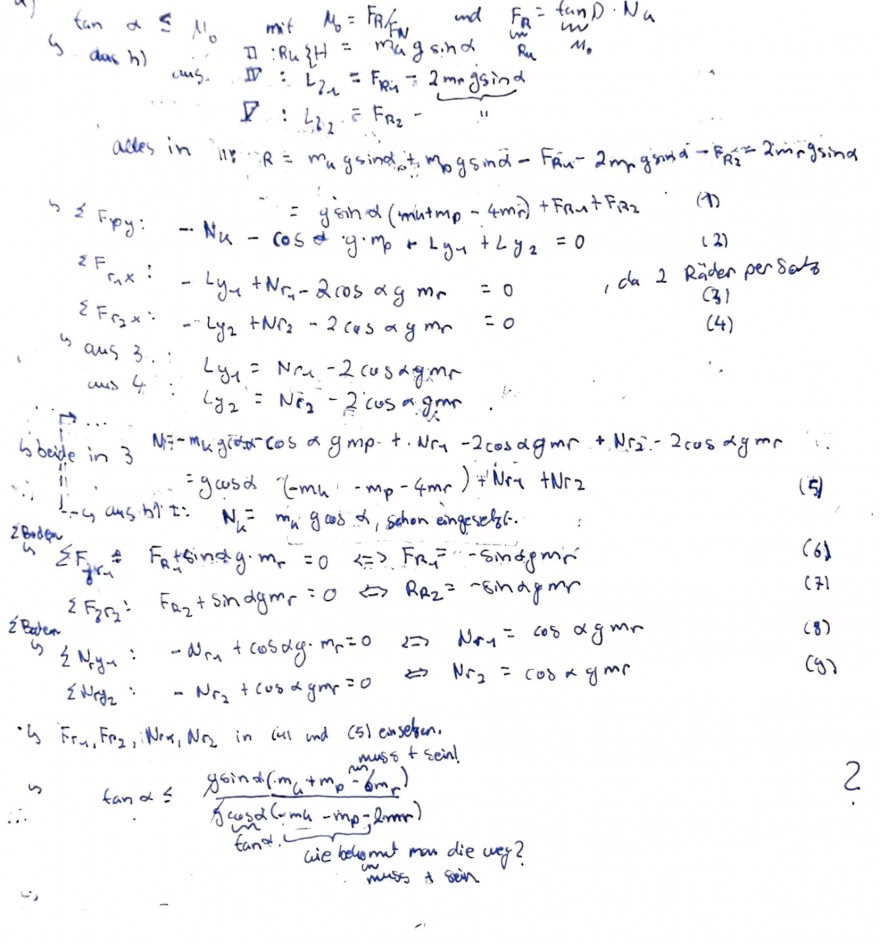 tan α ≤ μ₀ mit μ₀ = FR/FN und FR = tanρ · Nk
↳ das h) aus. II : Rk {H = mk g sinα Rk μ₀
IV : Lz1 = FR1 - 2mr g sinα
V : Lz2 = FR2 - "
alles in III: R = mk g sinα + mp g sinα - FR1 - 2mr g sinα - FR2 - 2mr g sinα
= g sinα (mk + mp - 4mr) + FR1 + FR2 (1)
↳ Σ Fpy: - Nk - cos α · g · mp + Ly1 + Ly2 = 0 (2)
Σ Fr1x: - Ly1 + Nr1 - 2cos α g mr = 0 , da 2 Räder per Satz (3)
Σ Fr2x: - Ly2 + Nr2 - 2 cos α g mr = 0 (4)
↳ aus 3 : Ly1 = Nr1 - 2 cos α g mr
aus 4 : Ly2 = Nr2 - 2 cos α g mr
↳ beide in 3 N = -mk g cosα - cos α g mp + Nr1 - 2cos α g mr + Nr2 - 2cos α g mr
= g cosα (-mk - mp - 4mr) + Nr1 + Nr2 (5)
↳ aus h) I: Nk = mk g cos α, schon eingesetzt.
Σ Boden
↳ Σ Fzr1 = FR1 + sinα g · mr = 0 <=> FR1 = -sinα g mr (6)
Σ Fzr2: FR2 + sinα g mr = 0 <=> RR2 = -sinα g mr (7)
Σ Boden
↳ Σ Nry1 : - Nr1 + cos α g · mr = 0 <=> Nr1 = cos α g mr (8)
Σ Nry2 : - Nr2 + cos α g mr = 0 <=> Nr2 = cos α g mr (9)
↳ Fr1, Fr2, Nr1, Nr2 in (1) und (5) einsetzen.
muss + sein!
↳ tan α ≤ g sinα (mk + mp - 6mr) / g cosα (-mk - mp - 2mr) ?
tanα.
wie bekommt man die weg?
muss + sein